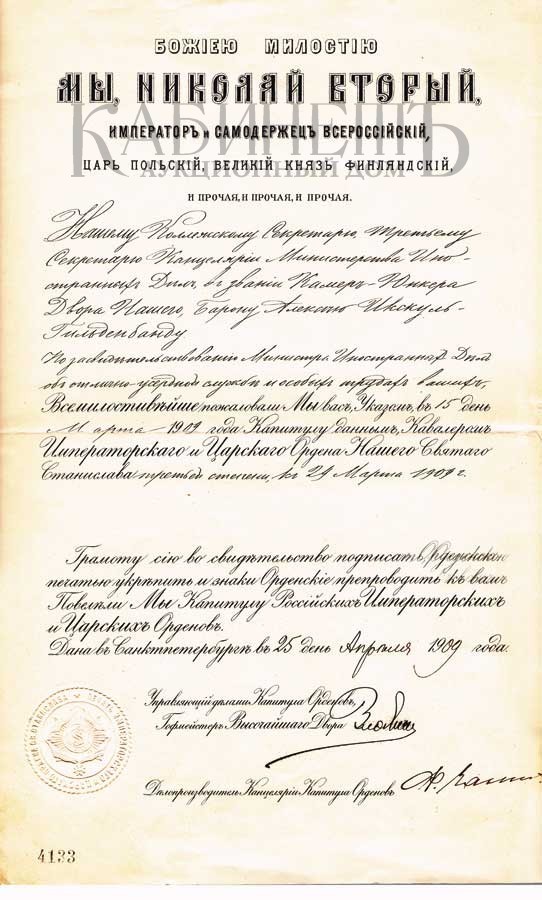 БОЖІЕЮ МИЛОСТІЮ
МЫ, НИКОЛАЙ ВТОРЫЙ,
КАБИНЕТЪ
ИМПЕРАТОРЪ и САМОДЕРЖЕЦЪ ВСЕРОССІЙСКІЙ,
АУКЦИОННЫЙ ДОМ
ЦАРЬ ПОЛЬСКІЙ, ВЕЛИКІЙ КНЯЗЬ ФИНЛЯНДСКІЙ,
И ПРОЧАЯ, И ПРОЧАЯ, И ПРОЧАЯ.
Нашему Коллежскому Секретарю, Третьему
Секретарю Канцеляріи Министерства Ино-
странныхъ Дѣлъ, въ званіи Камеръ-Юнкера
Двора Нашего, Барону Алексѣю Икскуль-
Гильденбанду
По засвидѣтельствованію Министра Иностранныхъ Дѣлъ
объ отлично-усердной службѣ и особыхъ трудахъ вашихъ,
Всемилостивѣйше пожаловали Мы васъ, Указомъ, въ 15 день
Марта 1909 года Капитулу даннымъ, Кавалеромъ
Императорскаго и Царскаго Ордена Нашего Святаго
Станислава третьей степени, къ 29 Марта 1909 г.
Грамоту сію во свидѣтельство подписать, Орденскою
печатью укрѣпить и знаки Орденскіе препроводить къ вамъ
Повелѣли Мы Капитулу Россійскихъ Императорскихъ
и Царскихъ Орденовъ.
Дана въ Санктпетербургѣ въ 25 день Апрѣля 1909 года.
Управляющій дѣлами Капитула Орденовъ,
Гофмейстеръ Высочайшаго Двора
Дѣлопроизводитель Канцеляріи Капитула Орденовъ
4133